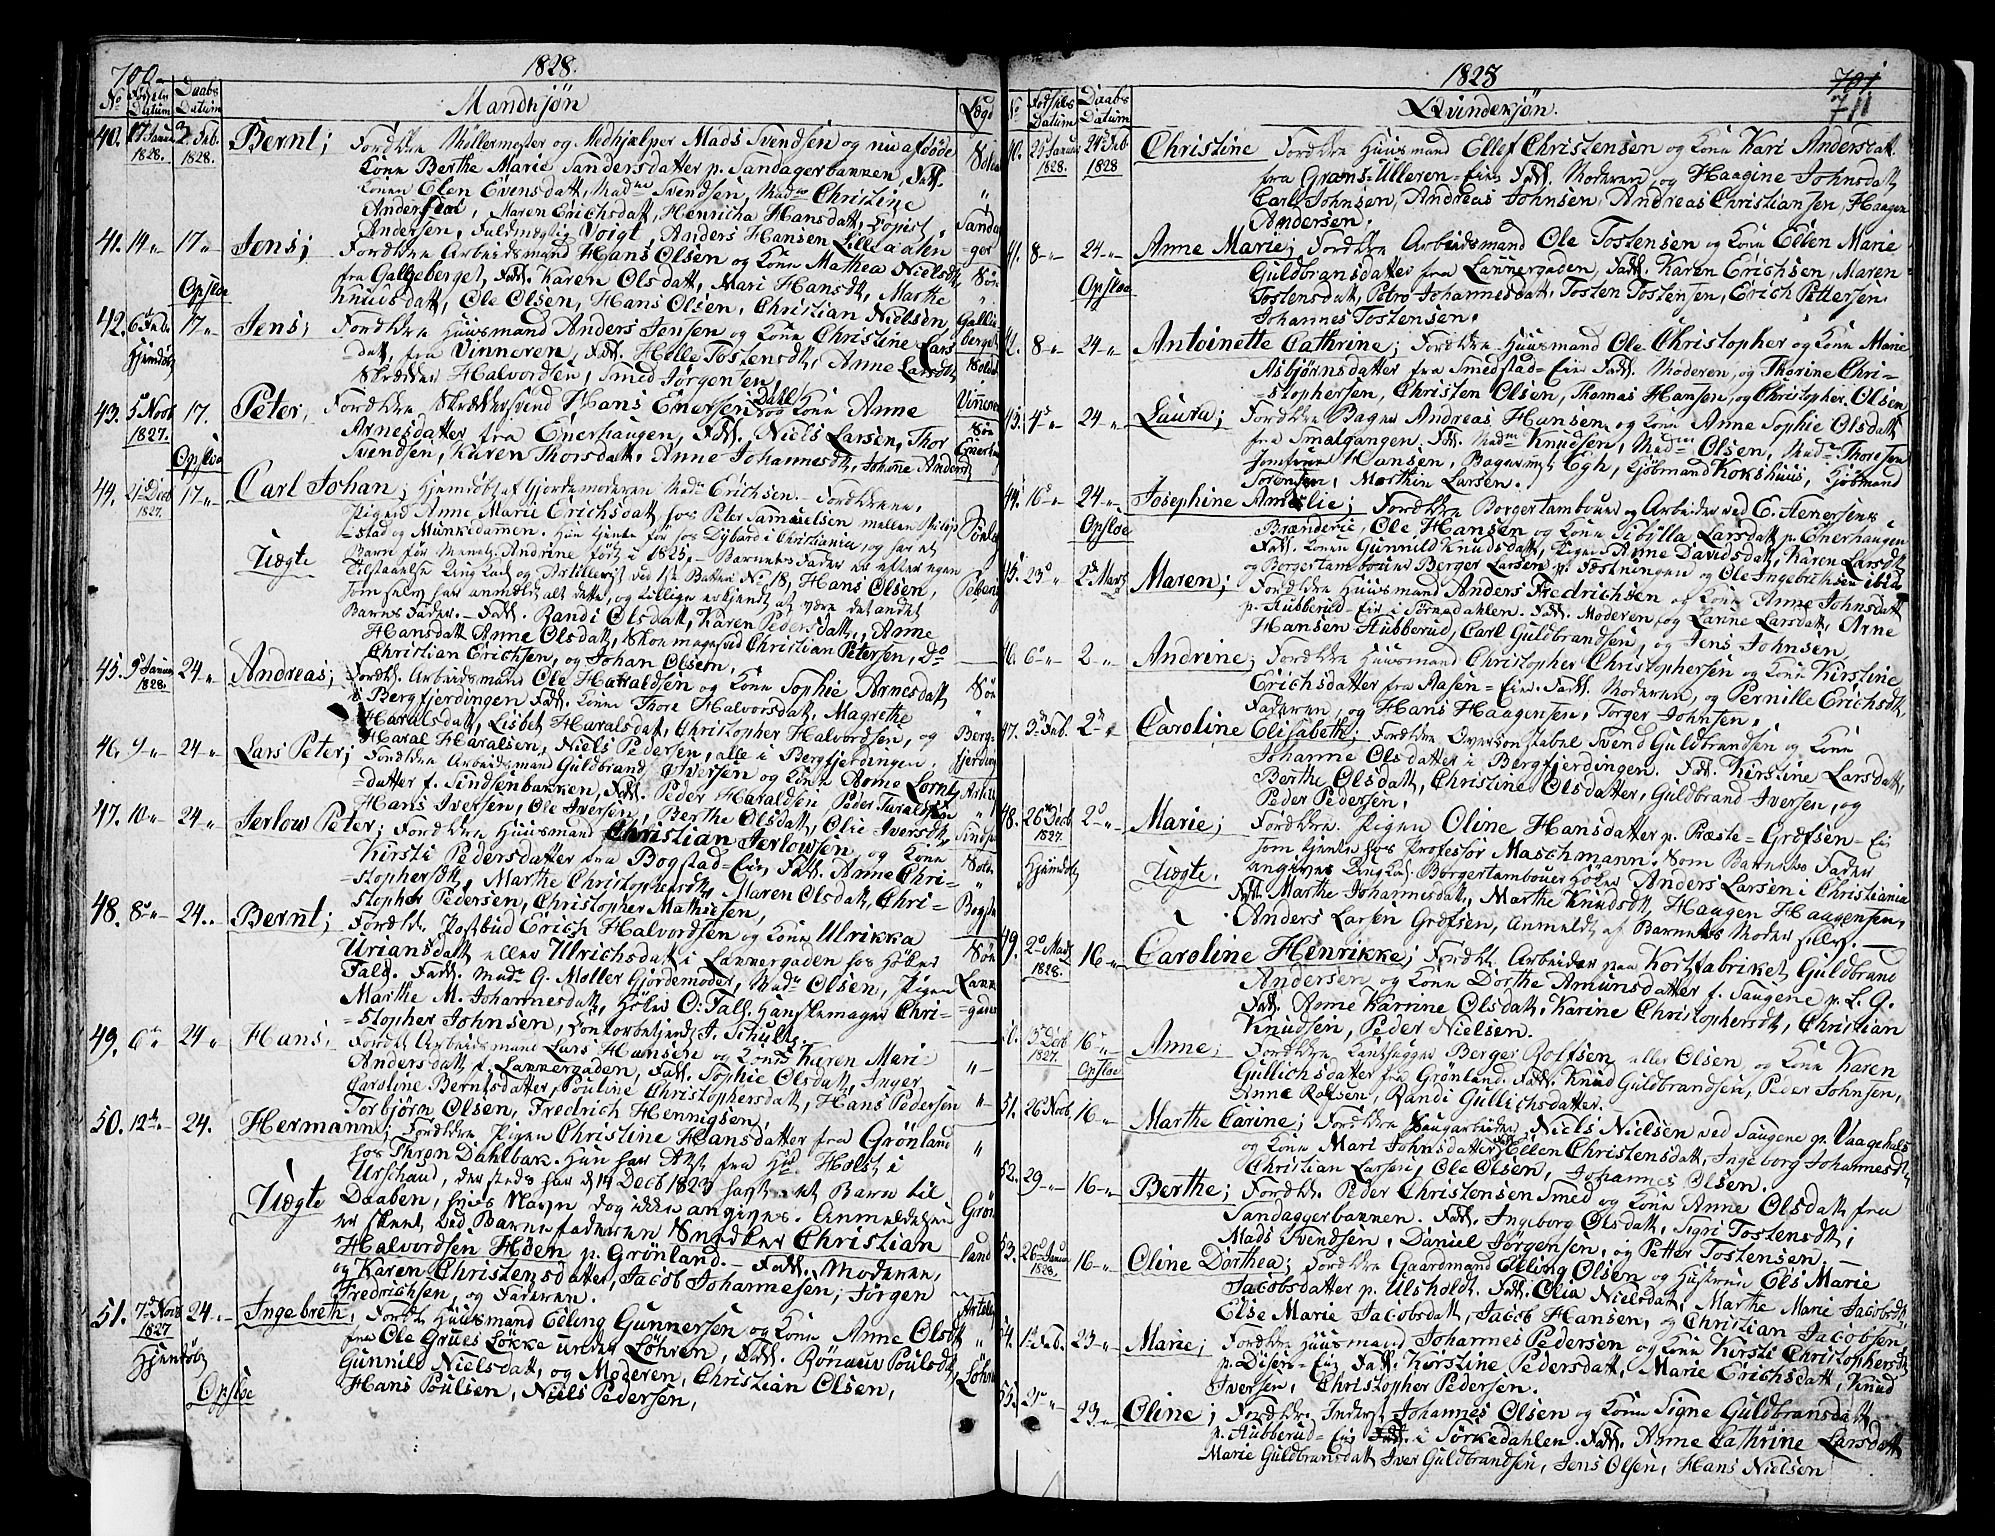 700.
1828.
No
Fødsels Datum
Daabs Datum
Mandkjøn
Lægd
40. 17 Janu 1828. 2 Feb. 1828. Bernt; Forældre Møllermester og Medhjelper Mads Svendsen og nu afdøde
Kone Berthe Marie Sandersdatter p. Sandagerbakken, Fadd.
Konen Elen Evensdatt, Madme Svendsen, Madme Christine
Andersen, Maren Erichsdatt, Henricha Hansdatt, Copist
Andersen, Fuldmægtig Voigt, Anders Hansen Lilleaalen
41. 14 " 17 " Jens; Forældre Arbeidsmand Hans Olsen og Kone Mathea Nielsdt
fra Galgeberget, Fadd. Karen Olsdatt, Mari Hansdt, Marthe
Opsloe
Knudsdatt, Ole Olsen, Hans Olsen, Christian Nielsen,
42. 6 Feb. 17 " Jens; Forældre Huusmand Anders Jensen og Kone Christine Lars
Hjemdøbt
datt, fra Vinneren, Fadd. Helle Tostensdt, Anne Larsdt
Skrædder Halvordsen, Smed Jørgensen,
43. 5 Novb 1827. 17. Peter, Forældre Skræddersvend Hans Enersen Dahl og Kone Anne
Arnesdatter fra Enerhaugen, Fadd. Niels Larsen, Thor
Opsloe
Svendsen, Karen Thorsdatt, Anne Johannesdt, Johane Andersd
44. Decb 1827. 17 " Carl Johan; Hjemdøbt af Gjordemoderen Mad. Erichsen. Forældrene
Pigen Anne Marie Erichsdatt hos Peter Samuelsen mellem Philip
stad og Munkedammen. Hun tjente for hos Dybard i Christiania, og har et
Uægte
Barn før ved Navn Andrine født i 1825, Barnets Fader er efter egen
Tilstaaelse Ung Karl og Artillerist ved 1ste Batteri No 18, Hans Olsen,
som selv har anmeldt alt dette, og tillige erkjendt at være det andet
Barns Fader. Fadd. Randi Olsdatt, Karen Pedersdatt, Anne
Hansdatt Anne Olsdatt, Skomagersvend Christian Petersen, Do
Christian Erichsen, og Johan Olsen,
45. 9 Janu 1828. 24 " Andreas; Forældr. Arbeidsmand Ole Haraldsen og Kone Sophie Arnesdatt
i Bergfjerdingen Fadd. Kone Thore Halvorsdatt, Magrethe
Haralsdatt, Lisbet Haralsdat, Christopher Halvordsen, og
Haral Haralsen, Niels Pedersen, alle i Bergfjerdingen.
46. 9 " 24 " Lars Peter; Forældre Arbeidsmand Guldbrand Iversen og Kone Anne Lornts
datter f. Sindsenbakken, Fadd. Peder Haraldsen Peder
Hans Iversen, Ole Iversen, Berthe Olsdatt, Olie Iversdt,
47. 10 " 24 " Jerlow Peter; Forældre Huusmand Christian Jerlowsen og Kone
Kirsti Pedersdatter fra Bogstad-Eie, Fadd. Anne Chri-
stophersdt, Marthe Christophersdt, Maren Olsdatt, Chri-
stopher Pedersen, Christopher Mathisen,
48. 8 " 24 " Bernt; Forældr. Postbud Erich Halvordsen og Kone Ulrikka
Uriansdatt eller Ulrichsdatt i Lannergaden hos Høker
Fals. Fadd. Mad. G. Møller Gjordemoder, Mad. Olsen, Pigen
Marthe M. Johannesdatt, Høker O. Fals, Handskemager Chri-
stopher Johnsen, Contorbetjent J. Schultz.
49. 6 " 24 " Hans, Forældr Arbeidsmand Lars Hansen og Kone Karen Mari
Andersdatt f. Lannergaden, Fadd. Sophie Olsdatt, Inger
Caroline Berntsdatter, Pouline Christophersdatt, Hans Pedersen
Torbjørn Olsen, Fredrich Hennigsen,
50. 12 " 24. Hermann; Forældre Pigen Christine Hansdatter fra Grønland
hos Thron Dahlbak. Hun har Attst fra Hr. Holst i
Urschaug, der steds har d 14 Decb 1823 havt et Barn til
Uægte
Daaben, hvis Navn dog ikke angives. Anmeldelsen
er skeet ved Barnefaderen Snedker Christian
Halvordsen Høen p. Grønland. Fadd. Moderen,
og Karen Christensdatter, Jacob Johannesen, Jørgen
Fredrichsen, og Faderen.
51. 7 Novb 1827 24 " Ingebreth, Forældr Huusmand Elling Gunnersen og Kone Anne Olsdt
Hjemdøbt
fra Ole Grues Løkke under Løhren, Fadd. Rønnau Poulsdt,
Gunnild Nielsdatt, og Moderen, Christian Olsen,
Opsloe
Hans Poulsen, Niels Pedersen,
1828
701
711
No
Fødsels Datum
Daabs Datum
Qvindekjøn.
40. 21 Januar 1828. 24 Feb. 1828 Christine Forældre Huusmand Ellef Christensen og Kone Kari Andersdatt
fra Grøns-Ulleren-Eie Fadd. Moderen, og Haagine Johnsdatt
Carl Johnsen, Andreas Johnsen, Andreas Christiansen, Haagen
Andersen.
41. 8 " 24 " Anne Marie; Forældre Arbeidsmand Ole Tostensen og Kone Ellen Marie
Opsloe
Guldbransdatter fra Lannergaden, Fadd. Karen Erichsen, Maren
Tostensdatt, Petro Johannesdatt, Tosten Tostensen, Erich Pettersen,
Johannes Tostensen,
42. 8 " 24 " Antoinette Cathrine; Forældre Huusmand Ole Christopher og Kone Marie
Asbjørnsdatter fra Smedstad-Eie Fadd. Moderen, og Thorine Chri-
stophersen, Christen Olsen, Thomas Hansen, og Christopher Olsen
43. 4 " 24 " Laura; Forældre Bager Andreas Hansen og Kone Anne Sophie Olsdatt
fra Smalgangen. Fadd. Madm Knudsen, Madm Olsen, Mad. Thoresen
Jomfrue Hansen, Bagersvend Egh, Kjøbmand Kokshuus, Kjøbmand
Torensen, Morthin Larsen.
44. 16 " 24 " Josephine Amalie; Forældre Borgertambour og Arbeider ved E. Aenersens
Opsloe
Brænderie, Ole Hansen og Kone Sibylla Larsdatt p. Enerhaugen
Fadd. Konen Gunnild Knudsdatt, Pigen Anne Davidsdatt, Karen Larsdt
og Borgertambourer Berger Larsen p. Fæstningen og Ole Ingebrithsen ibid
45. 23 " 2 Marts Maren; Forældre Huusmand Anders Fredrichsen og Kone Anne Johnsdatt
p. Hubberud-Eie i Sørnedahlen. Fadd. Moderen, og Lanne Larsdatt, Arne
Hansen Hubberud, Carl Guldbrandsen, og Jens Johnsen,
46. 6 " 2 " Andrine; Forældre Huusmand Christopher Christophersen og Kone Kirstine
Erichsdatter fra Aasen-Eie. Fadd. Moderen, og Pernille Erichsdt,
Faderen, og Hans Haagensen, Torger Johnsen,
47. 3 Feb. 2 " Caroline Elisabeth; Forældre Overkonstabel Svend Guldbrandsen og Kone
Johanne Olsdatter i Bergfjerdingen. Fadd. Kirstine Larsdatt,
Berthe Olsdatt, Christine Olsdatter, Guldbrand Iversen, og
Peder Pedersen,
48. 26 Decb 1827. 2 " Marie; Forældre Pigen Oline Hansdatter p. Præste-Grefsen-Eie
som tjente hos Professor Maschmann. Som Barnets Fader
Hjemdøbt
Uægte.
angives Ung Karl Borgertambour Høker Anders Larsen i Christiania
Fadd. Marthe Johannesdatt, Marthe Knudsdt, Haagen Haagensen,
Anders Larsen Grefsen, Anmeldt af Barnets Moder selv.
49. 2 Marts 1828. 16 " Caroline Henrikke; Forældr. Arbeider paa Kortfabriket Guldbrand
Andersen og Kone Dorthe Amunsdatter f. Saugene p. L. G.
Fadd. Anne Karrine Olsdatt, Karine Christophersdt, Christian
Knudsen, Peder Nielsen.
50. 3 Decb 1827. 16 " Anne; Forældre Kanthugger Berger Rolfsen eller Olsen, og Kone Karen
Opsloe
Gullichsdatter fra Grønland. Fadd. Knud Guldbrandsen, Peder Johnsen,
Anne Rolfsen, Randi Gullichsdatter.
51. 26 Novb. 16 " Marthe Carine; Forældre Saugarbeider Niels Nielsen ved Saugene p. Vaagehals
og Kone Mari Johnsdatter Fadd. Ellen Christensdatt, Ingeborg Johannesdt
Christian Larsen, Ole Olsen, Johannes Olsen.
52. 29 " 16 " Berthe; Forældr. Peder Christensen Smed og Kone Anne Olsdatt fra
Sandaggerbakken. Fadd. Ingeborg Olsdatt, Sigri Tostensdt;
Mads Svendsen, Daniel Jørgensen, og Petter Tostensen.
53. 26 Janu 1828. 16 " Oline Dorthea; Forældre Gaardmand Elling Olsen og Hustrue Els Marie
Jacobsdatter p. Ulsholdt. Fadd. Olia Nielsdat, Marthe Marie Jacobsdt,
Else Marie Jacobsdt, Jacob Hansen, og Christian Jacobsen,
54. 1 Feb. 23 " Marie; Forældre Huusmand Johannes Pedersen og Kone Kirsti Christophersdt
p. Disen-Eie Fadd. Kirstine Pedersdatt, Marie Erichsdatt, Knud
Iversen, Christopher Pedersen.
55. 21 " 23 " Oline; Forældre Inderst Johannes Olsen og Kone Signe Guldbransdatt
p. Hubberud-Eie i Sørkedahlen. Fadd. Anne Cathrine Larsdatt
Marie Guldbransdatt, Iver Guldbrandsen, Jens Olsen, Hans Nielsen